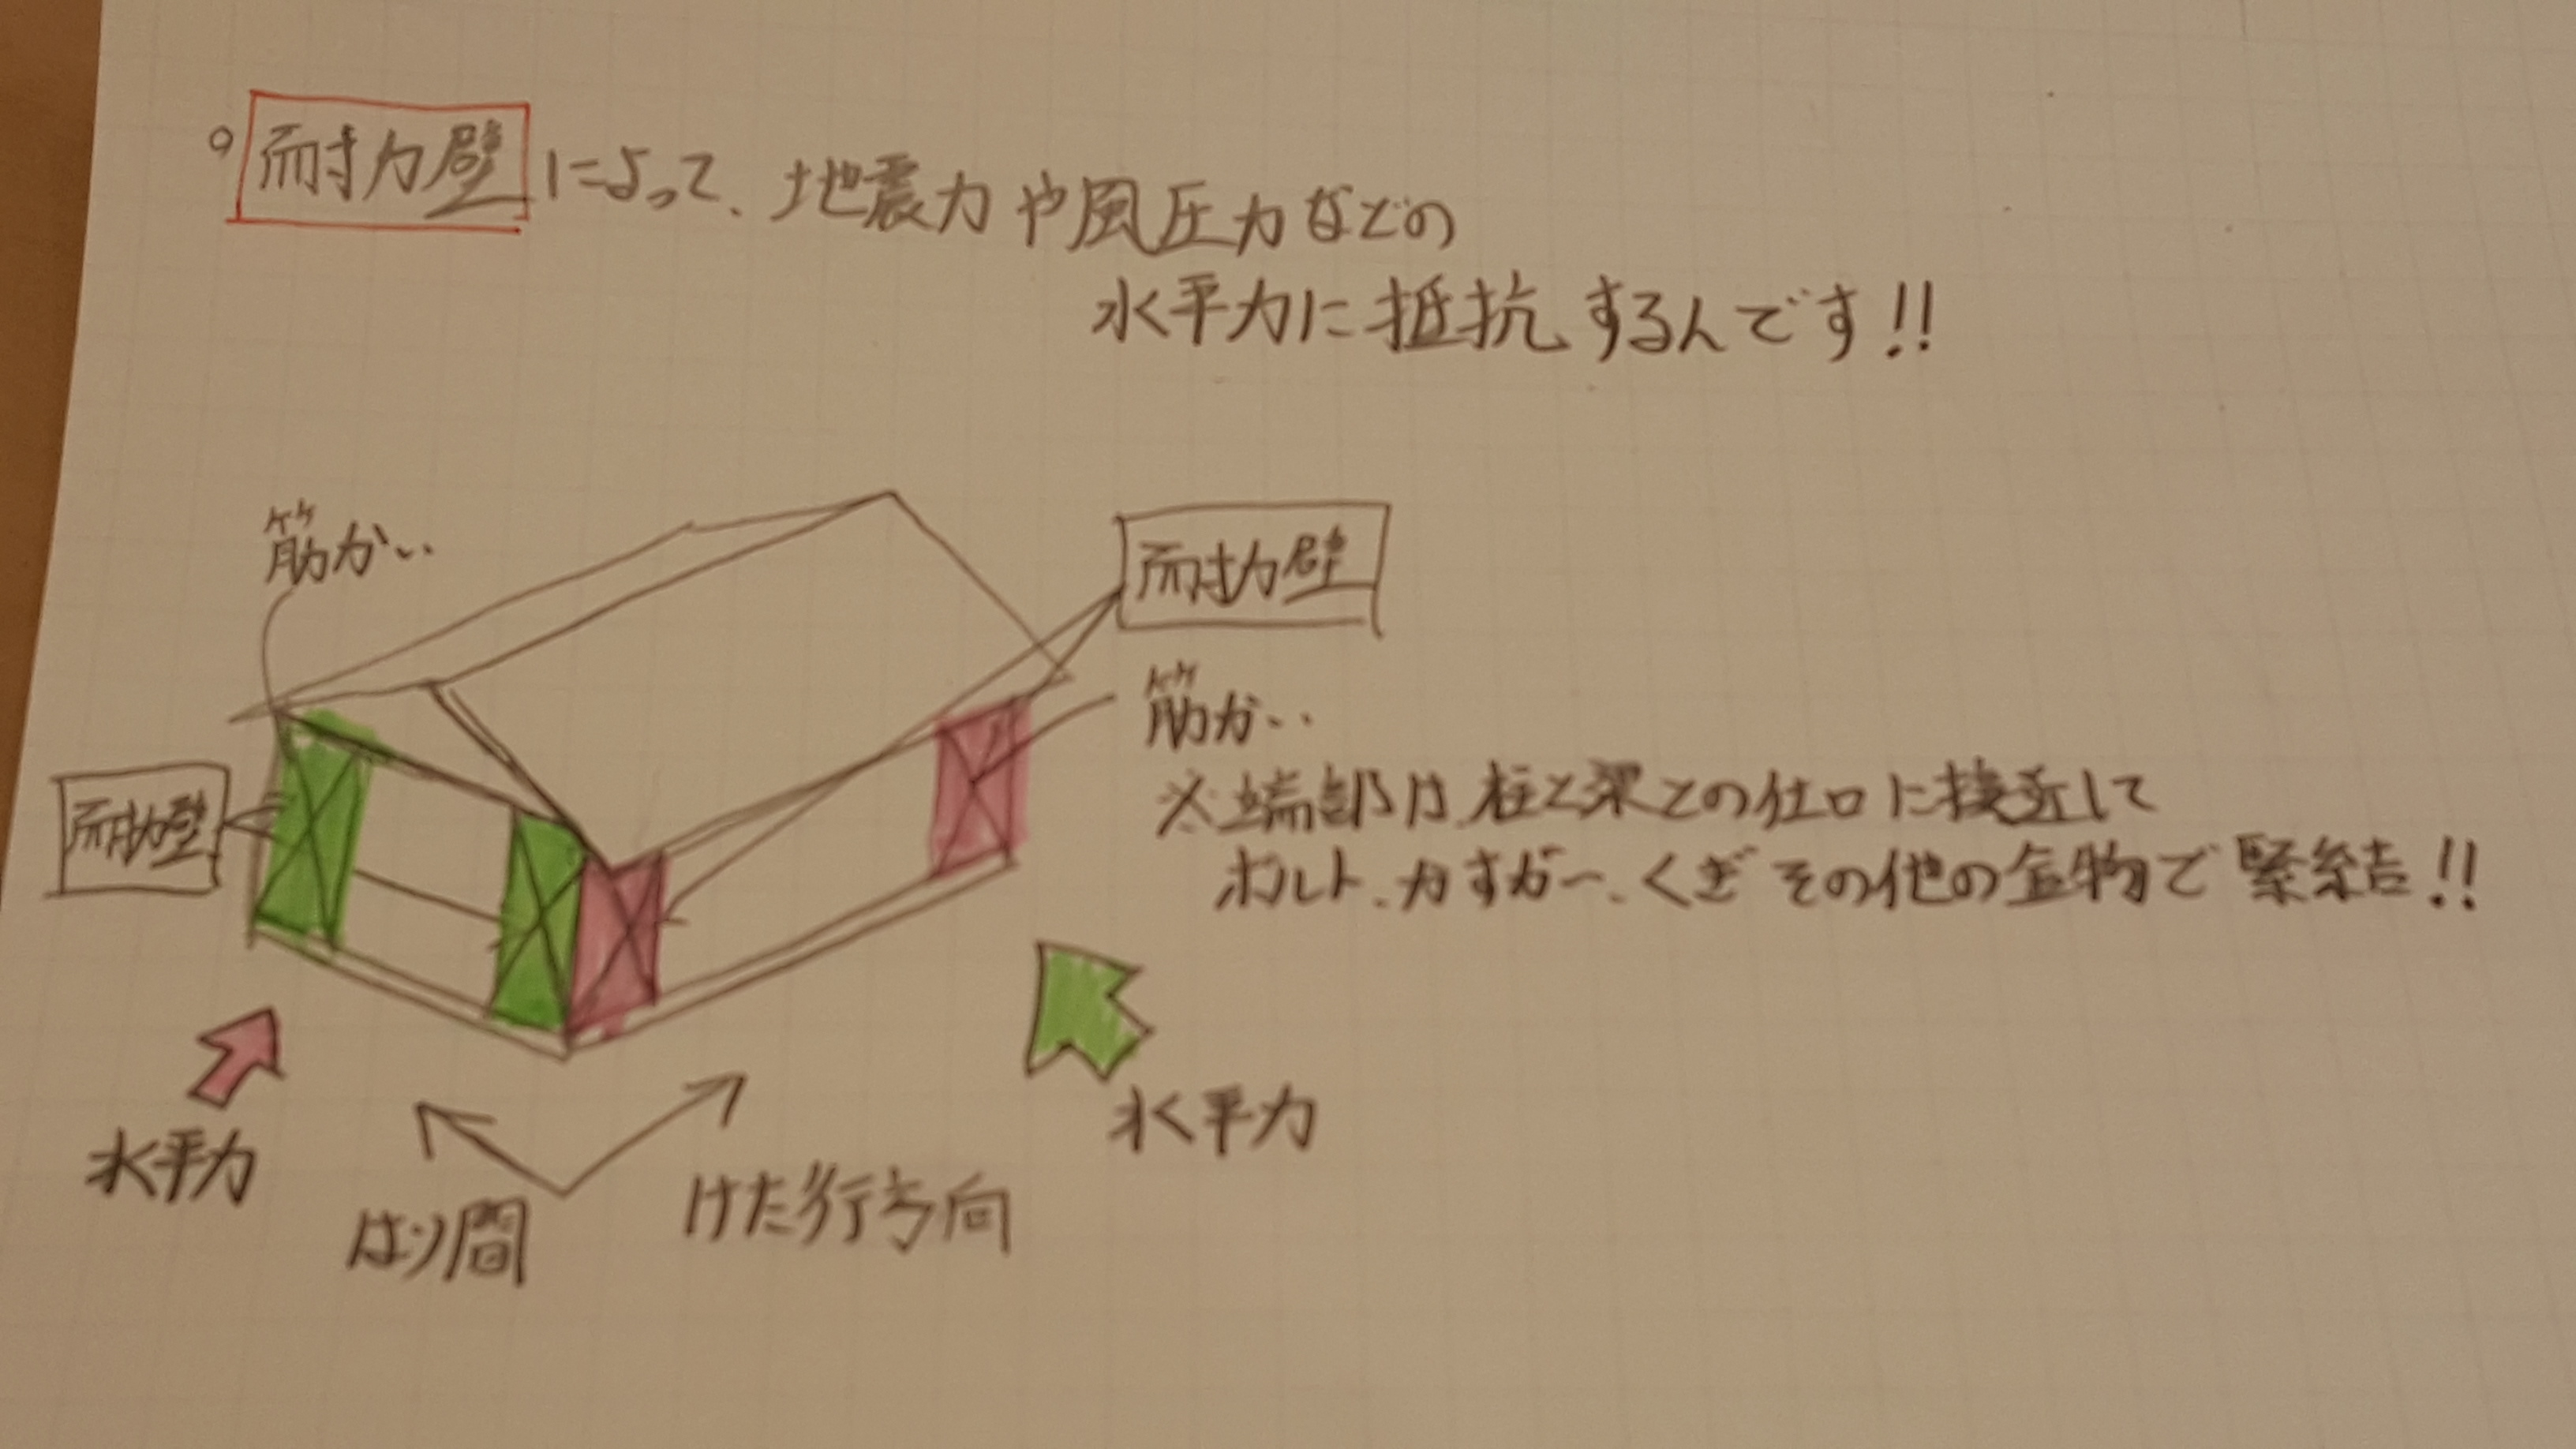 ○耐力壁によって、地震力や風圧力などの
水平力に抵抗するんです!!
筋かい
耐力壁
筋かい
※端部は、柱と梁との仕口に接近して
ボルト、かすがい、くぎその他の金物で緊結!!
耐力壁
水平力
水平力
はり間
けた行方向